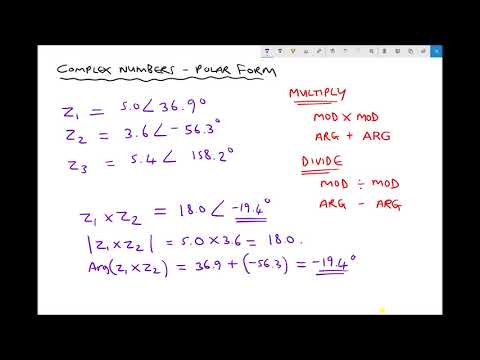 COMPLEX NUMBERS - POLAR FORM
Z₁ = 5.0∠36.9°
Z₂ = 3.6∠-56.3°
Z₃ = 5.4∠ 158.2°
MULTIPLY
MOD × MOD
ARG + ARG
DIVIDE
MOD ÷ MOD
ARG - ARG
Z₁ × Z₂ = 18.0 ∠ -19.4°
|Z₁ × Z₂| = 5.0 × 3.6 = 18.0.
Arg(Z₁ × Z₂) = 36.9 + (-56.3) = -19.4°